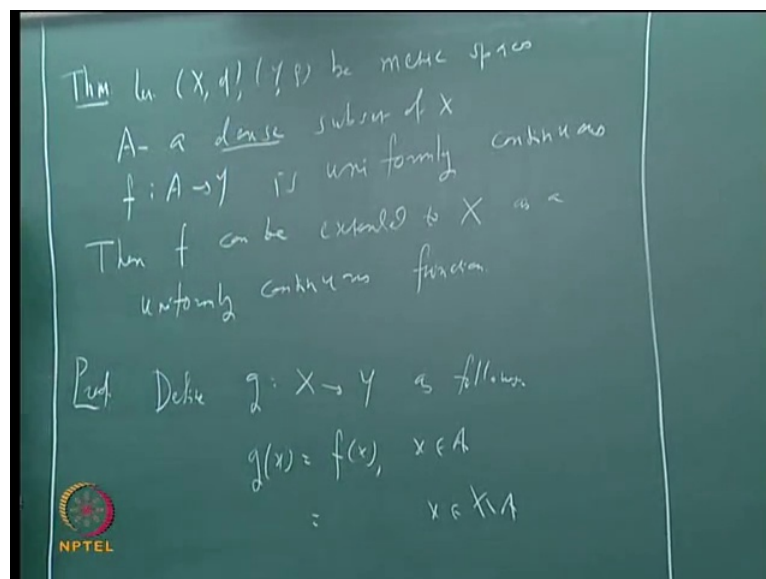 Thm Let (X, d), (Y, ρ) be metric spaces
A - a dense subset of X
f : A → Y is uniformly continuous
Then f can be extended to X as a
uniformly continuous function.
Proof. Define g : X → Y as follows
g(x) = f(x), x ∈ A
= x ∈ X\A
NPTEL